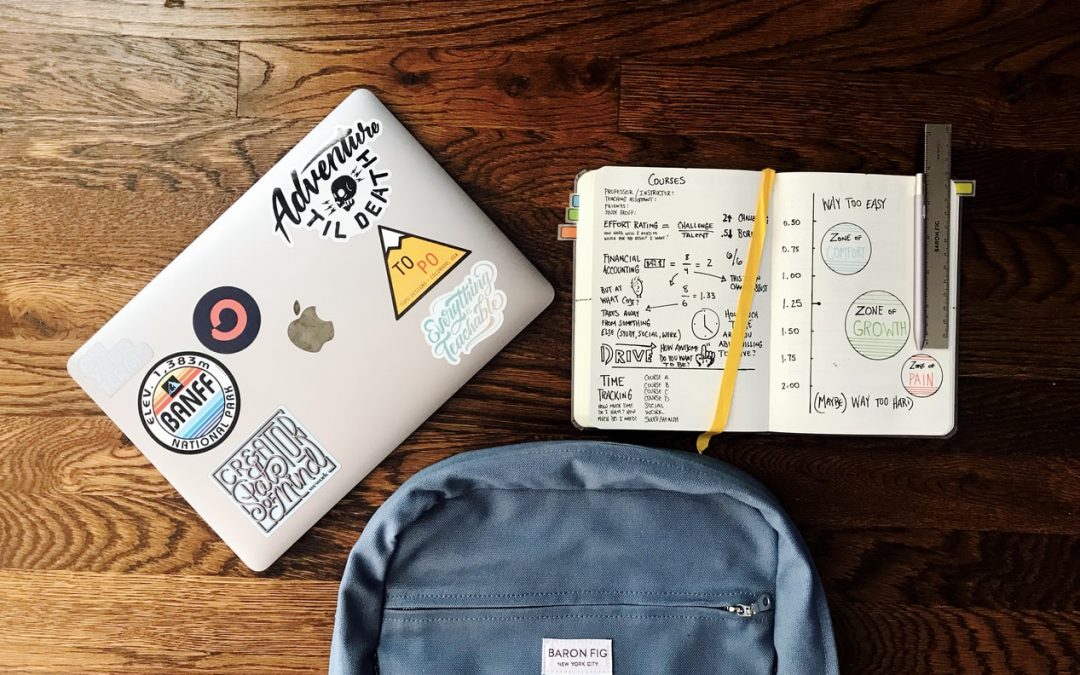 Adventure
'TIL DEATH
TO PO
Everything
is
Teachable
ELEV. 1,383m
BANFF
NATIONAL PARK
CREATOR
State
of mind
COURSES
PROFESSOR / INSTRUCTOR:
TEACHING ASSISTANT:
FRIENDS:
STUDY GROUP:
EFFORT RATING = CHALLENGE
TALENT
2↑
.5↓
FINANCIAL
ACCOUNTING
= 8/4 = 2
6/6
8/6 = 1.33
BUT AT
WHAT COST?
TAKES AWAY
FROM SOMETHING
ELSE (STUDY, SOCIAL, WORK)
DRIVE
HOW AWESOME
DO YOU WANT
TO BE?
TIME
TRACKING
HOW MUCH TIME
DO I HAVE? HOW
MUCH DO I NEED?
COURSE A
COURSE B
COURSE C
COURSE D
SOCIAL
WORK
SLEEP/HEALTH
WAY TOO EASY
0.50
0.75
1.00
1.25
1.50
1.75
2.00
ZONE OF
COMFORT
ZONE OF
GROWTH
ZONE OF
PAIN
(MAYBE) WAY TOO HARD
BARON FIG
BARON FIG
NEW YORK CITY